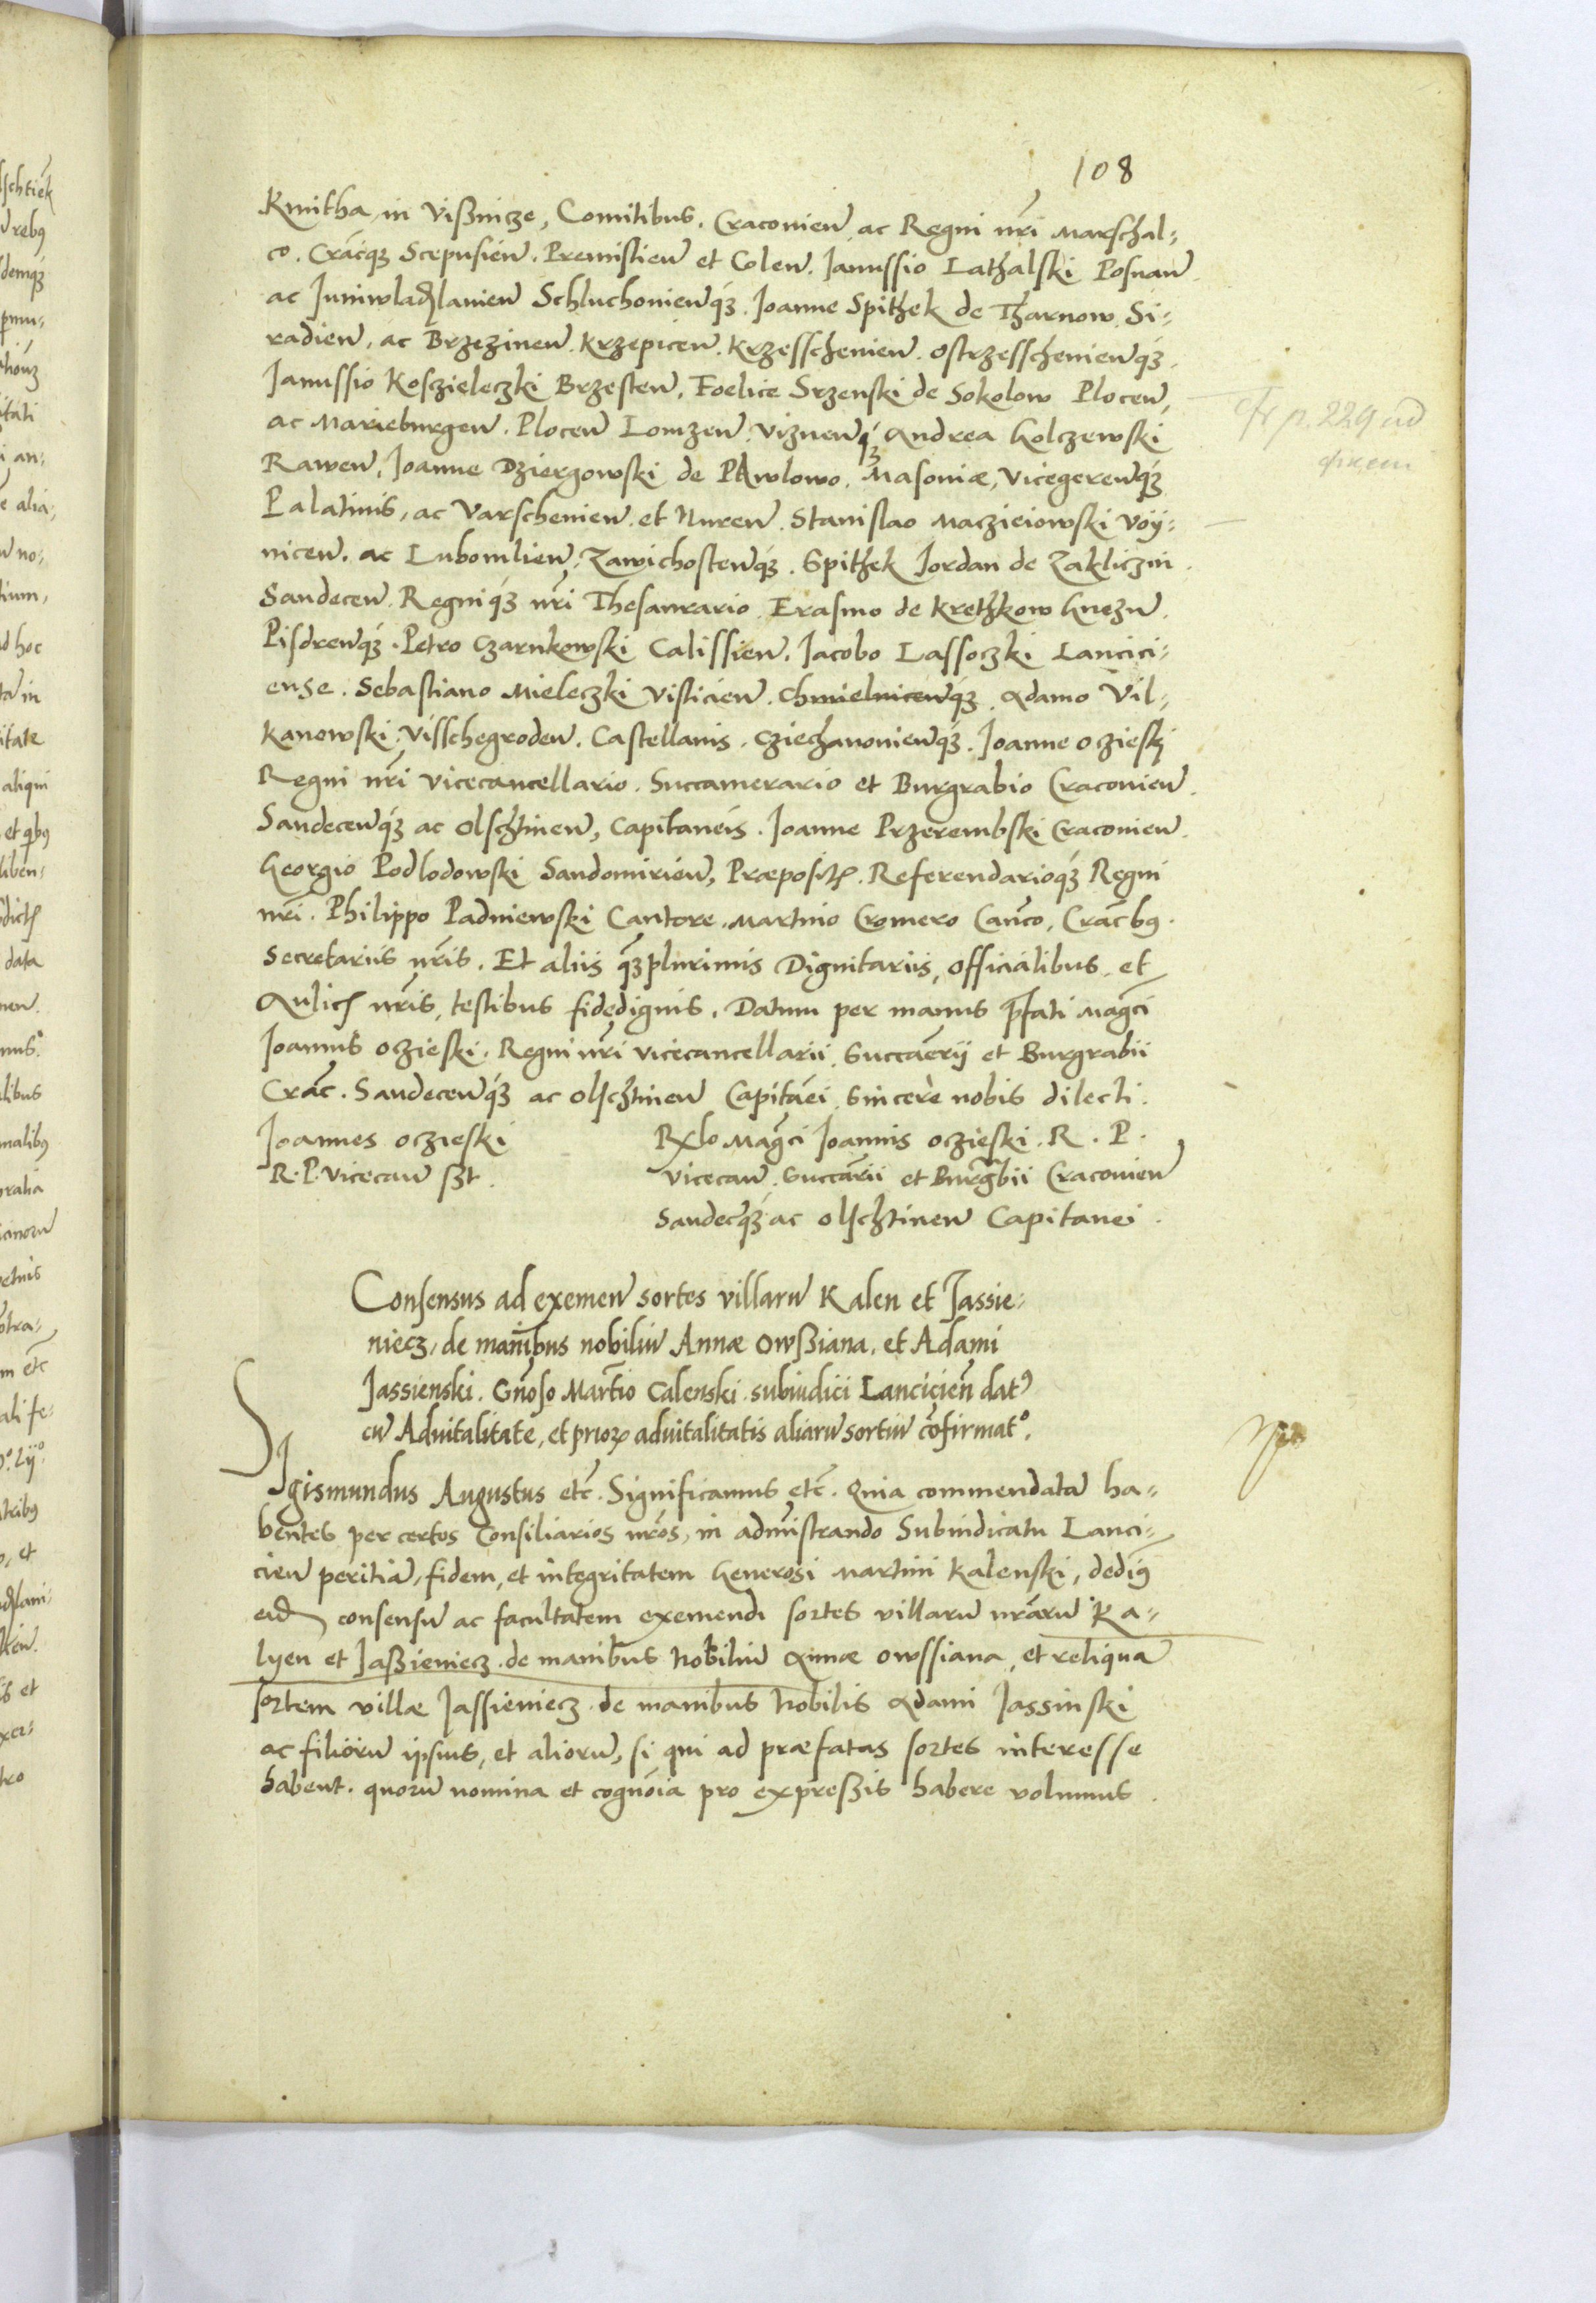 108
Kmitha in Vißnicze, Comitibus. Cracovien ac Regni nr̃i Marschal⸗
co. Crac̃q₃ Scepusien. Premislien et Colen. Janussio Lathalski Posnan
ac Juniwladislavien Schluchovienq₃. Joanne Spithek de Tharnow. Si⸗
radien, ac Brzezinen. Krzepicen. Krzesschenien. Ostrzesschenienq₃.
Janussio Kosczieleczki Brzesten, Foelice Srzenski de Sokolow Plocen,
ac Marieburgen. Plocen Lomzen. Viznenq₃ Andrea Golczewski
Rawen, Joanne Dziergowski de PAwlowo. Masoviæ, Vicegerenq₃
Palatinis, ac Varschenien et Nuren. Stanislao Maczieiowski Voÿ⸗
nicen. ac Lubomlien, Zawichostenq₃. Spithek Jordan de Zakliczin
Sandecen. Regniq₃ nr̃i Thesaurario. Erasmo de Krethkow Gnezn.
Pisdrenq₃. Petro Czarnkowski Calissien. Jacobo Lassoczki Lancici⸗
ense. Sebastiano Mieleczki Visticien. Chmielnicenq₃. Adamo Vil⸗
kanowski. Visschegroden. Castellanis. Cziechanovienq₃. Joanne Oczieski
Regni nr̃i Vicecancellario. Succamerario et Burgrabio Cracovien.
Sandecenq₃ ac Olschtinen, Capitaneis. Joanne Przerembski Cracovien.
Georgio Podlodowski Sandomirien, Præpositꝭ. Referendarioq₃ Regni
nr̃i. Philippo Padniewski Cantore. Martino Cromero Canc̃o, Crac̃bꝰ.
Secretariis nr̃is. Et aliis q̃₃plurimis Dignitariis, Officialibus, et
Aulicꝭ nr̃is, testibus fidedignis. Datum per manus p̃fati Mag̃ci
Joannis Oczieski. Regni nr̃i Vicecancellarii. Succam̃erij et Burgrabii
Crac̃. Sandecenq₃ ac Olschtinen Capitãei. Sincere nobis dilecti.
Joannes Oczieski
R. P. Vicecan sst.
Rx̃lo Mag̃ci Joannis Oczieski. R. P.
Vicecan. Succãrii et Burg̃bii Cracovien
Sandecq₃ ac Olschtinen Capitanei.
Consensus ad exemen sortes villarũ Kalen et Jassie⸗
niecz, de manibus nobiliũ Annæ Owßiana, et Adami
Jassienski. Gñoso Martĩo Calenski. subiudici Lancicieñ datꝰ
cũ Advitalitate, et prioꝝ advitalitatis aliarũ sortiũ cõfirmatº.
SIgismundus Augustus etc̃. Significamus etc̃. Quia commendatã ha⸗
bentes per certos Consiliarios nr̃os, in adm̃istrando Subiudicatu Lanci⸗
cien peritiã, fidem, et integritatem Generosi Martini Kalenski, dedimꝰ
eid consensũ ac facultatem exemendi sortes villarũ nr̃arũ Ka⸗
lyen et Jaßieniecz. de manibus Nobiliũ Annæ Owssiana, et reliquã
sortem villæ Jassieniecz. de manibus Nobilis Adami Jassinski
ac filiorũ ipsius, et aliorũ, si qui ad præfatas sortes interesse
habent. quorũ nomina et cognõia pro expreßis habere volumus.
cfr p. 229 ad